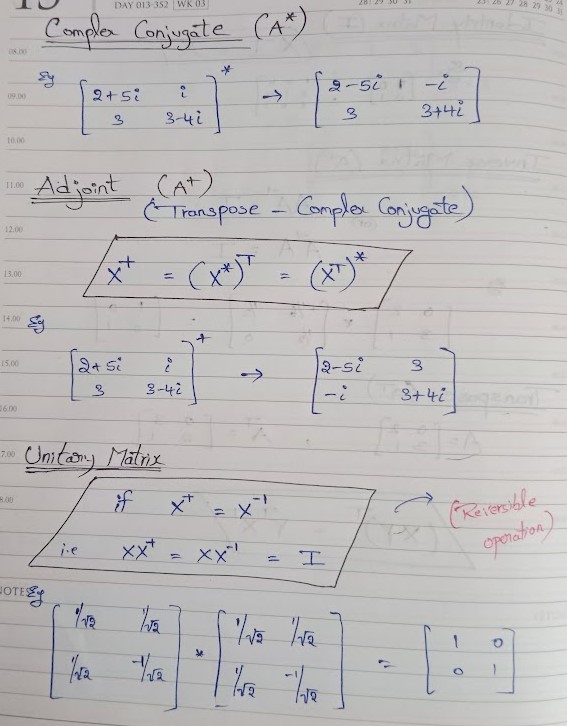 DAY 013-352 WK 03
Complex Conjugate (A*)
08.00
Eg
09.00
[2+5i i]* → [2-5i -i]
[3 3-4i] [3 3+4i]
10.00
11.00
Adjoint (A+)
(Transpose - Complex Conjugate)
12.00
X+ = (X*)T = (XT)*
13.00
14.00
Eg
[2+5i i]+ → [2-5i 3]
15.00
[3 3-4i] [-i 3+4i]
16.00
Unitary Matrix
if X+ = X-1
(Reversible
operation)
i.e XX+ = XX-1 = I
NOTES
Eg
[1/√2 1/√2] * [1/√2 1/√2] = [1 0]
[1/√2 -1/√2] [1/√2 -1/√2] [0 1]